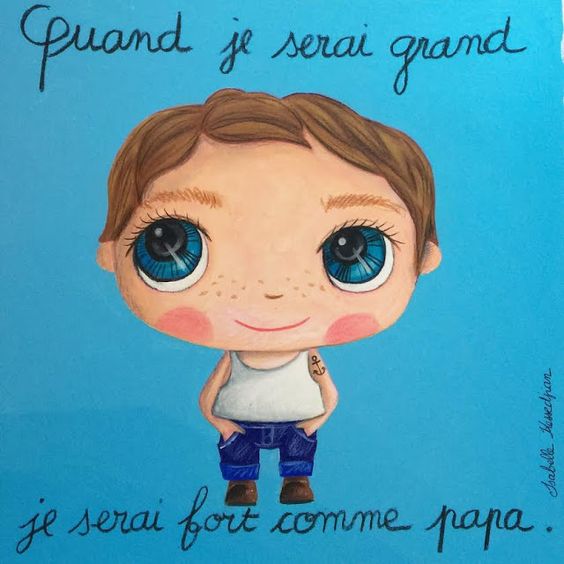 Quand je serai grand
je serai fort comme papa.
Isabelle Kessedjian